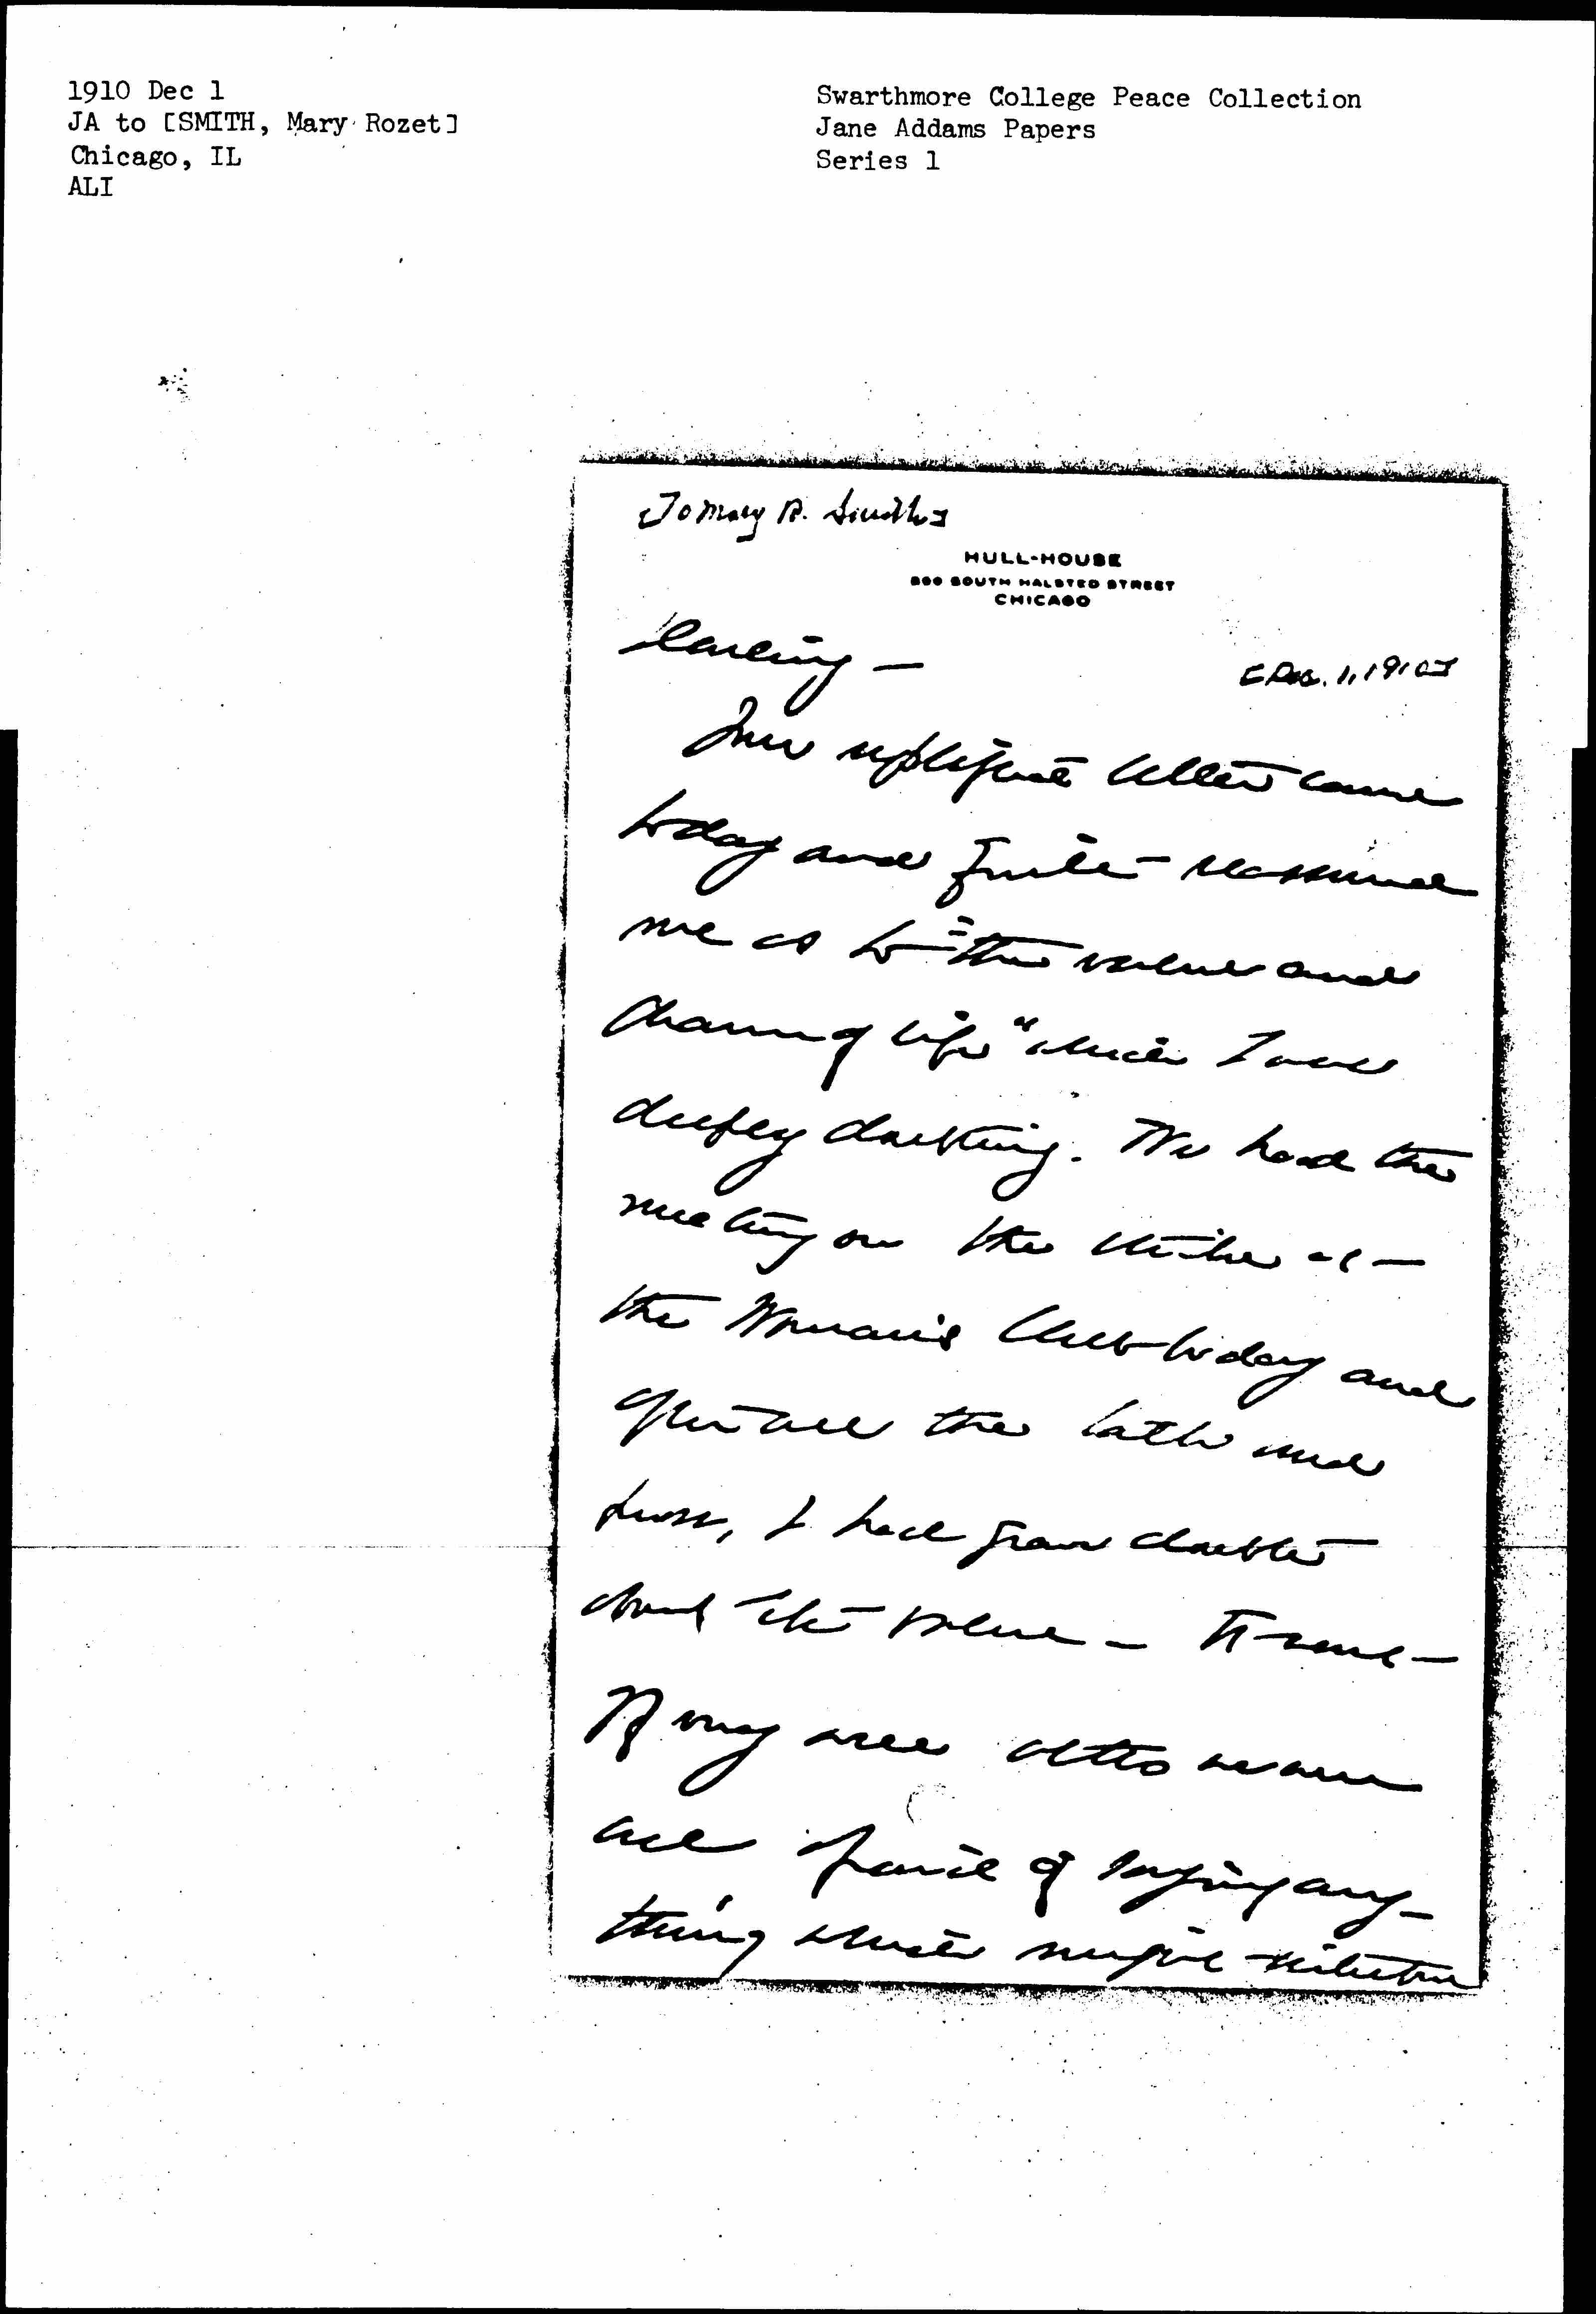 1910 Dec 1
JA to [SMITH, Mary Rozet]
Chicago, IL
ALI
Swarthmore College Peace Collection
Jane Addams Papers
Series 1
[To Mary R. Smith]
HULL-HOUSE
800 SOUTH HALSTED STREET
CHICAGO
[Dec. 1, 1910]
Darling —
Your letter came
today and quite reassured
me as to "the value and
charm of life" which I was
deeply doubting. We had the
meeting on the strike at
the Woman's Club today and
after all the talk and
fuss, I had grave doubts
about its value —
may well
all afraid of saying any-
thing which might